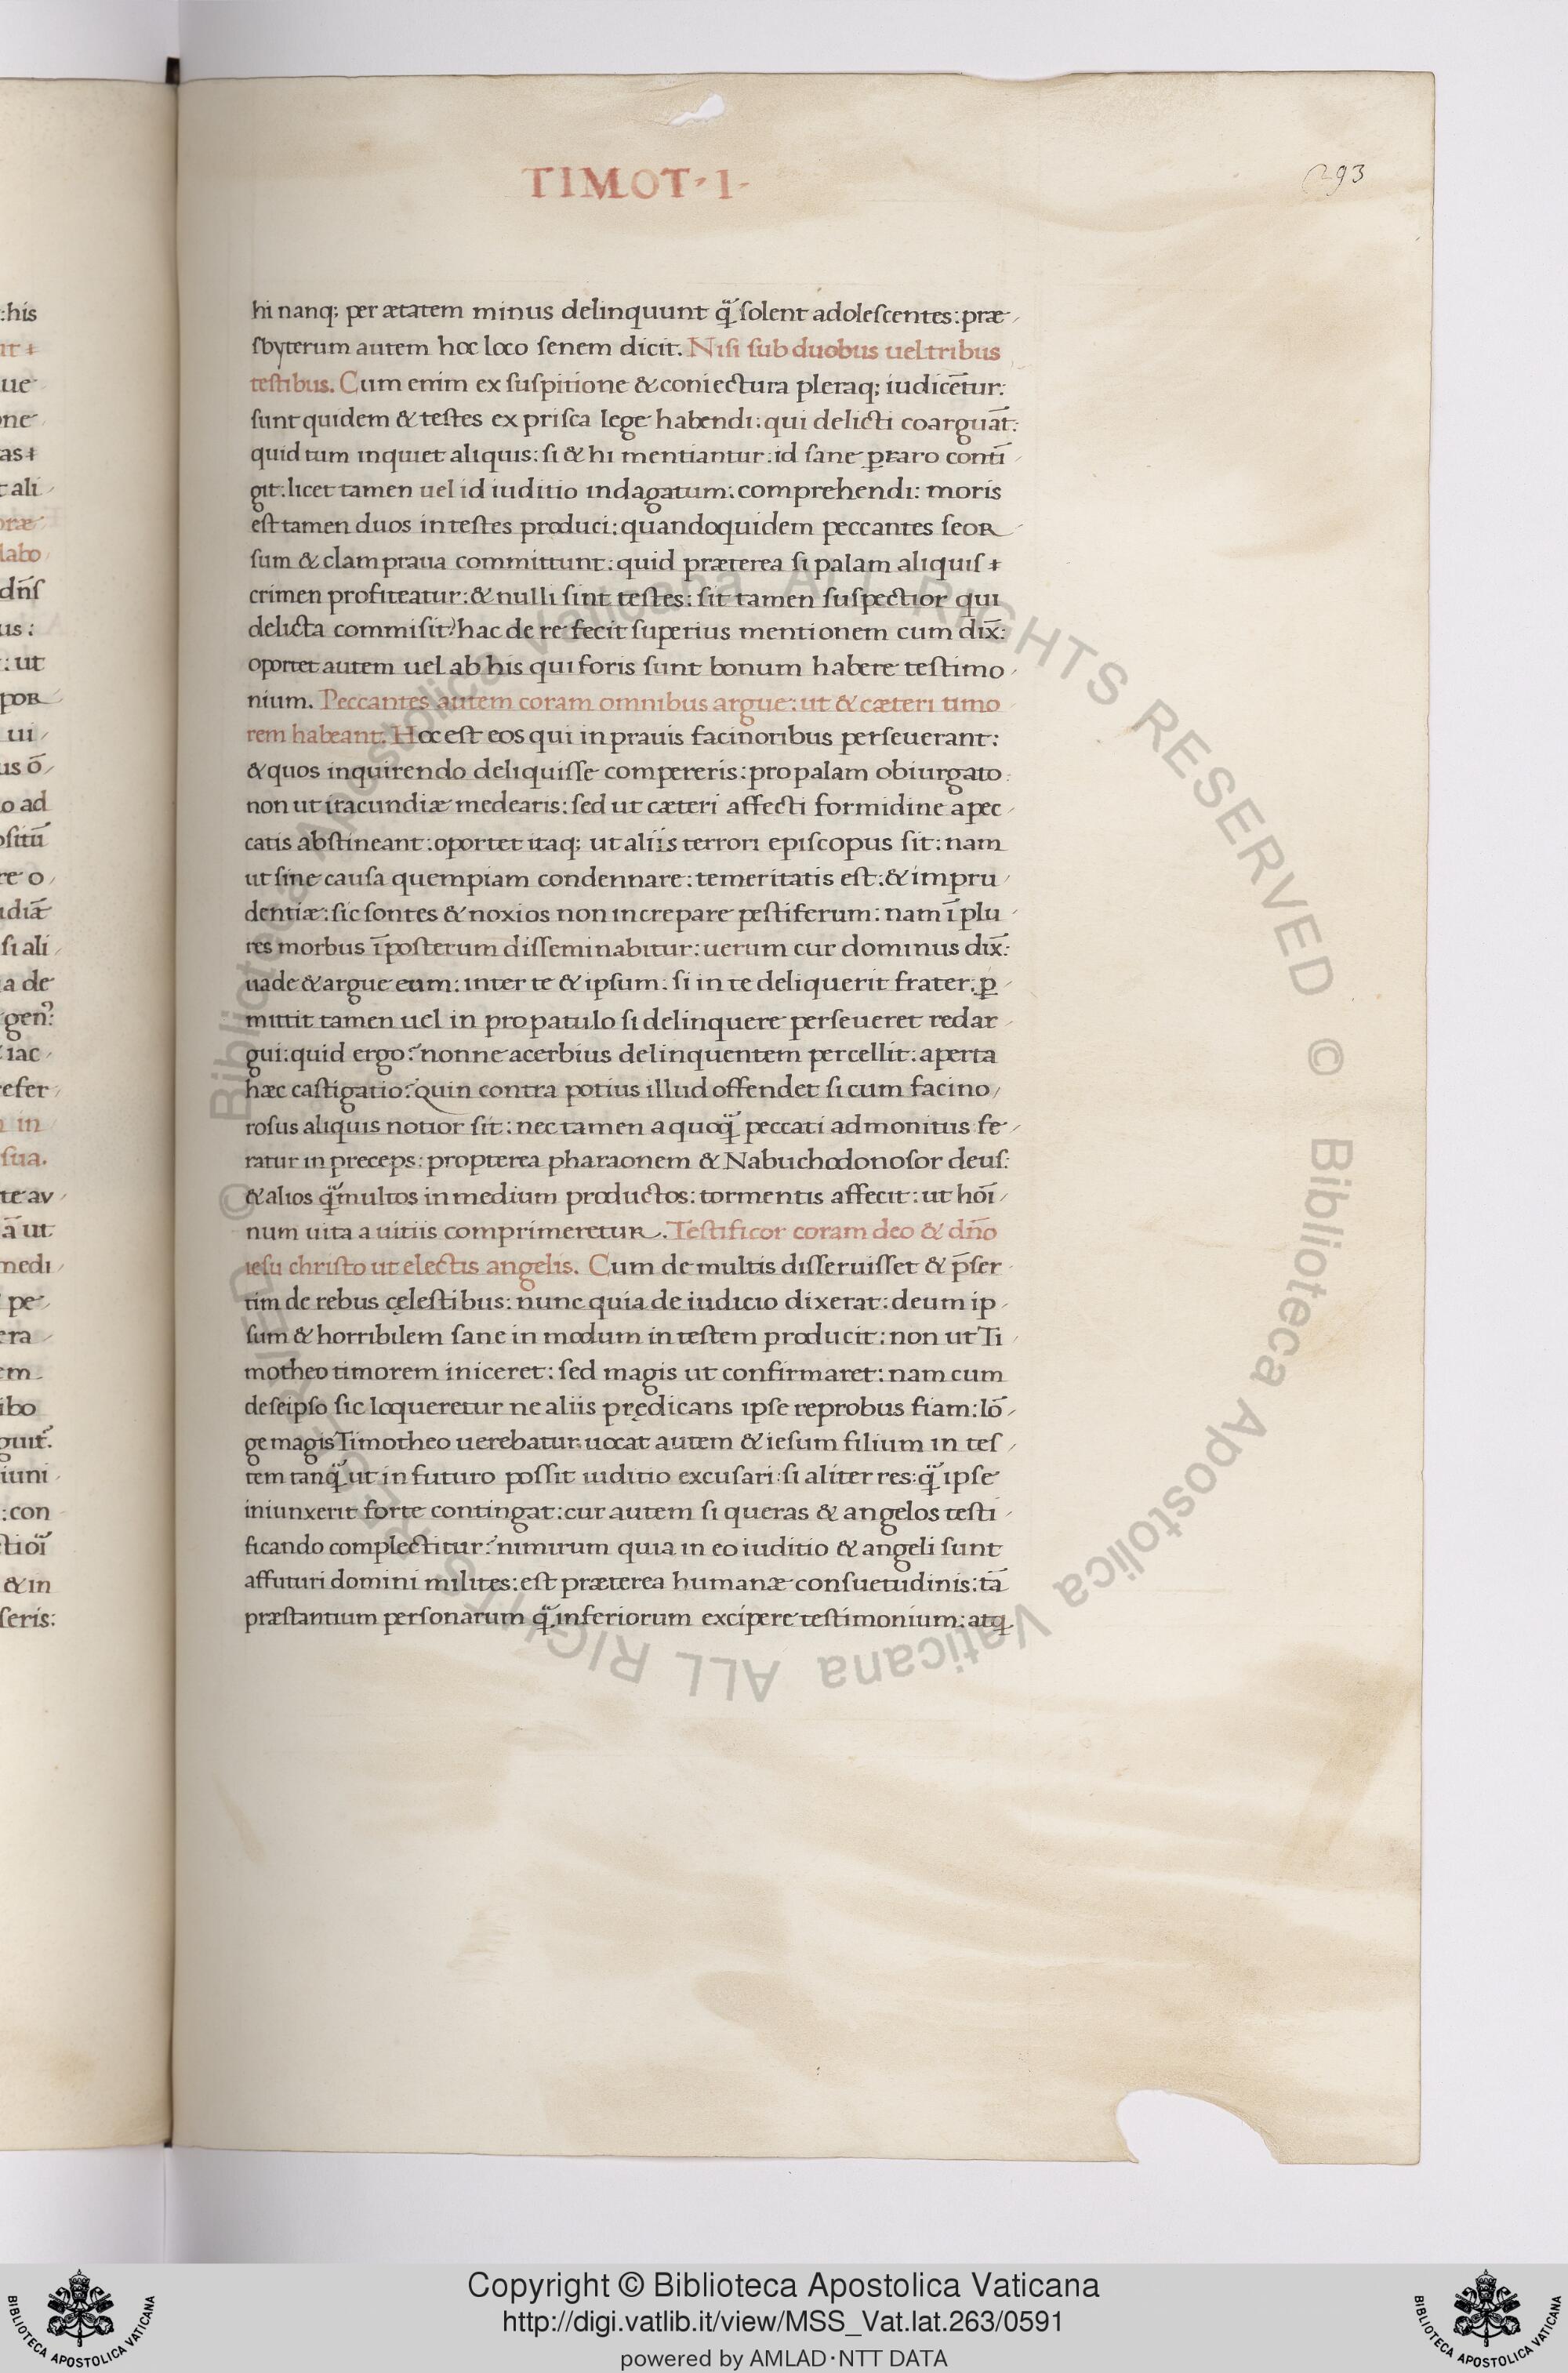 TIMOT · I ·
293
hi nanq; per ætatem minus delinquunt q̃ ſolent adoleſcentes: præ
ſbyterum autem hoc loco ſenem dicit. Niſi ſub duobus uel tribus
teſtibus. Cum enim ex ſuſpitione & coniectura pleraq; iudicent̄ur:
ſunt quidem & teſtes ex priſca lege habendi: qui delicti coarguāt:
quid tum inquiet aliquis: ſi & hi mentiantur: id ſane ꝑraro contī
git: licet tamen uel id iuditio indagatum: comprehendi: moris
eſt tamen duos in teſtes produci: quandoquidem peccantes ſeor
ſum & clam praua committunt: quid præterea ſi palam aliquiſ
crimen profiteatur: & nulli ſint teſtes: ſit tamen ſuſpectior qui
delicta commiſit? hac de re fecit ſuperius mentionem cum dix̄:
oportet autem uel ab his qui foris ſunt bonum habere teſtimo
nium. Peccantes autem coram omnibus argue: ut & cæteri timo
rem habeant. Hoc eſt eos qui in prauis facinoribus perſeuerant:
& quos inquirendo deliquiſſe compereris: propalam obiurgato
non ut iracundiæ medearis: ſed ut cæteri affecti formidine a pec
catis abſtineant: oportet itaq; ut aliis terrori epiſcopus ſit: nam
ut ſine cauſa quempiam condennare: temeritatis eſt: & impru
dentiæ: ſic ſontes & noxios non increpare peſtiferum: nam ī plu
res morbus ī poſterum diſſeminabitur: uerum cur dominus dix̄:
uade & argue eum: inter te & ipſum: ſi in te deliquerit frater. ꝑ
mittit tamen uel in propatulo ſi delinquere perſeueret redar
gui: quid ergo? nonne acerbius delinquentem percellit: aperta
hæc caſtigatio? quin contra potius illud offendet ſi cum facino
roſus aliquis notior ſit: nec tamen a quoq̃ peccati admonitus fe
ratur in preceps: propterea pharaonem & Nabuchodonoſor deuſ:
& alios q̃multos in medium productos: tormentis affecit: ut hoī
num uita a uitiis comprimeretur. Teſtificor coram deo & dn̄o
ieſu chriſto ut electis angelis. Cum de multis diſſeruiſſet & p̄ſer
tim de rebus cęleſtibus: nunc quia de iudicio dixerat: deum ip
ſum & horribilem ſane in modum in teſtem producit: non ut Ti
motheo timorem iniceret: ſed magis ut confirmaret: nam cum
de ſeipſo ſic loqueretur ne aliis prędicans ipſe reprobus fiam: lō
ge magis Timotheo uerebatur: uocat autem & ieſum filium in teſ
tem tanq̃ ut in futuro poſſit iuditio excuſari: ſi aliter res: q̃ ipſe
iniunxerit forte contingat: cur autem ſi queras & angelos teſti
ficando complectitur? nimirum quia in eo iuditio & angeli ſunt
affuturi domini milites: eſt præterea humanæ conſuetudinis: tā
præſtantium perſonarum q̃ inferiorum excipere teſtimonium: atq
Copyright © Biblioteca Apostolica Vaticana
http://digi.vatlib.it/view/MSS_Vat.lat.263/0591
powered by AMLAD·NTT DATA